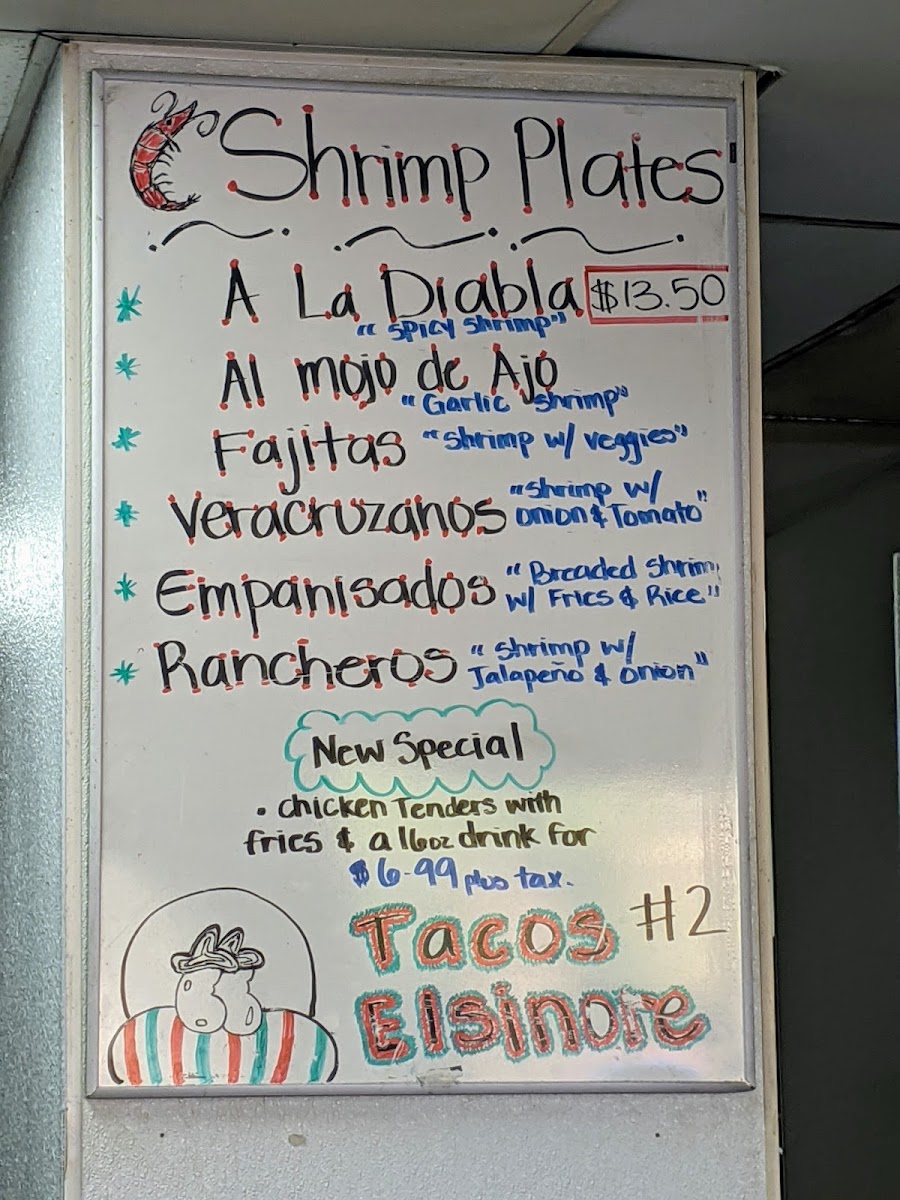 Shrimp Plates
* A La Diabla $13.50
"Spicy Shrimp"
* Al mojo de Ajo
"Garlic shrimp"
* Fajitas "shrimp w/ veggies"
* Veracruzanos "shrimp w/
onion & Tomato"
* Empanisados "Breaded Shrim
w/ Fries & Rice"
* Rancheros "shrimp w/
Jalapeño & onion"
New Special
• chicken Tenders with
fries & a 16oz drink for
$6.99 plus tax.
Tacos #2
Elsinore